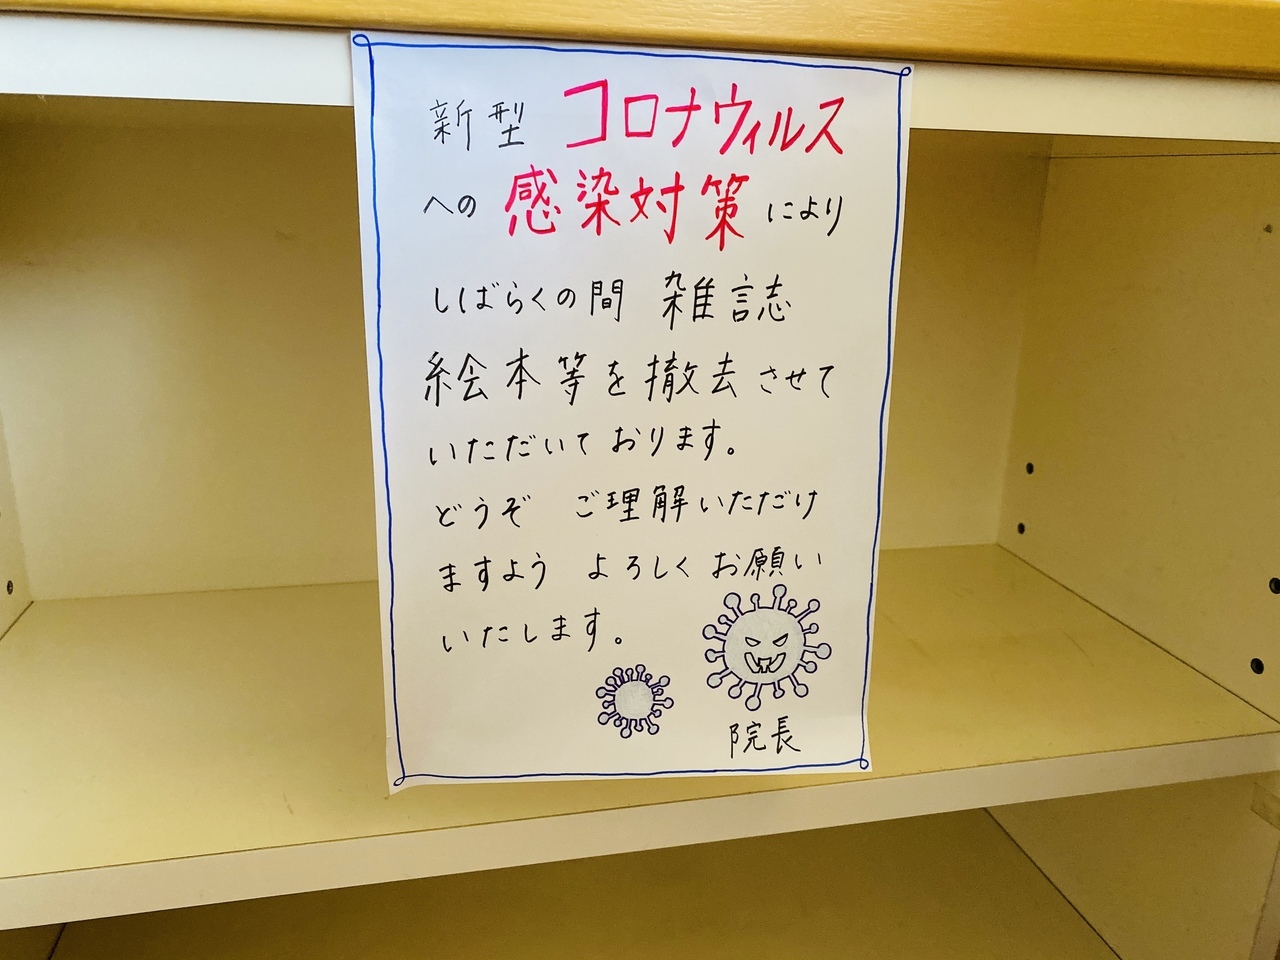 新型 コロナウィルス
への 感染対策 により
しばらくの間 雑誌
絵本等を撤去させて
いただいております。
どうぞ ご理解いただけ
ますよう よろしく お願い
いたします。
院長